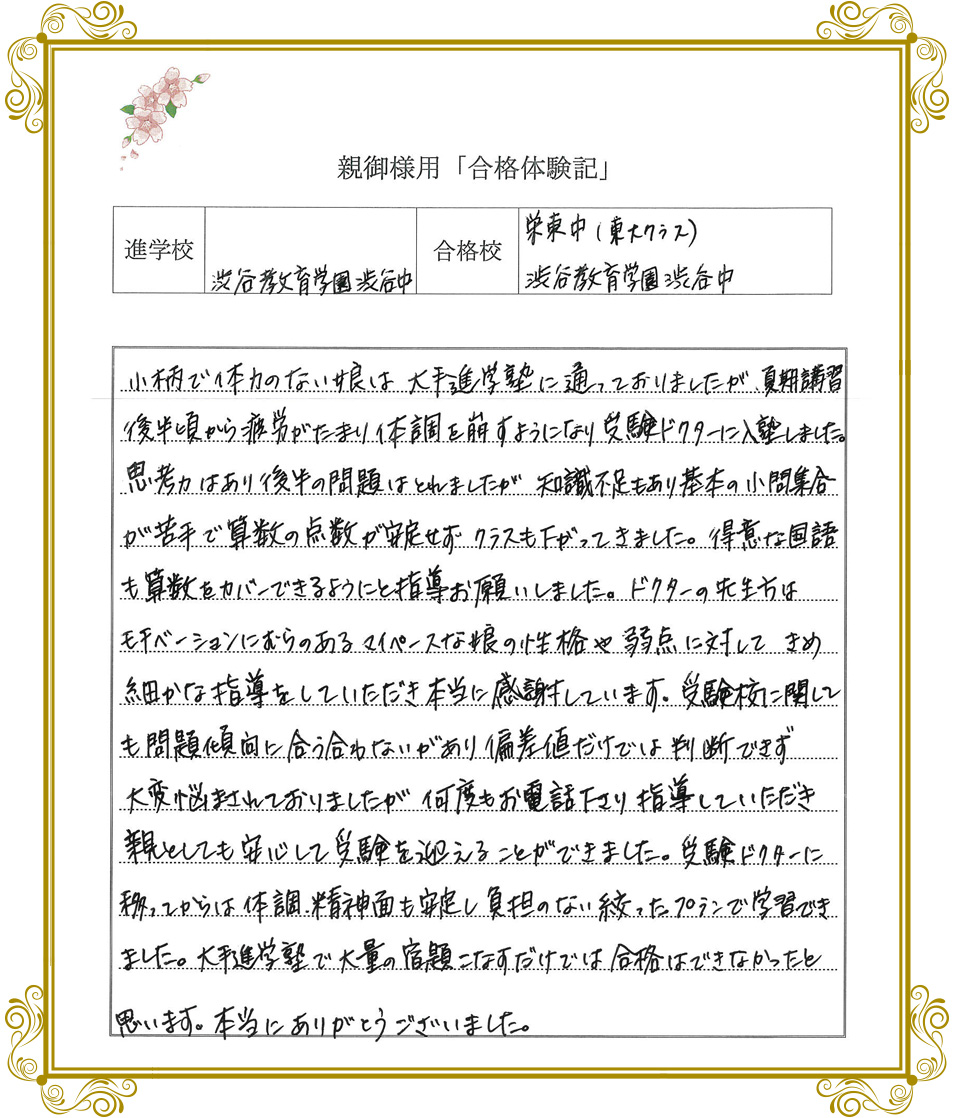 親御様用「合格体験記」
進学校
渋谷教育学園渋谷中
合格校
栄東中(東大クラス)
渋谷教育学園渋谷中
小柄で体力のない娘は 大手進学塾に通っておりましたが、夏期講習
後半頃から疲労がたまり体調を崩すようになり受験ドクターに入塾しました。
思考力はあり後半の問題はとれましたが 知識不足もあり基本の小問集合
が苦手で算数の点数が安定せず クラスも下がってきました。得意な国語
も算数をカバーできるようにと指導お願いしました。ドクターの先生方は
モチベーションにむらのあるマイペースな娘の性格や 弱点に対して きめ
細かな指導をしていただき本当に感謝しています。受験校に関して
も問題傾向に合う合わないがあり偏差値だけでは判断できず
大変悩まされておりましたが 何度もお電話下さり指導していただき
親としても安心して受験を迎えることができました。受験ドクターに
移ってからは体調、精神面も安定し負担のない絞ったプランで学習でき
ました。大手進学塾で大量の宿題こなすだけでは合格はできなかったと
思います。本当にありがとうございました。